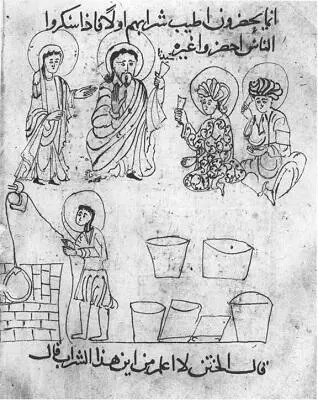 انما يحضرون اطيب شرابهم اولا فاذا سكروا
الناس احضروا غيره
قال الختن لا اعلم من اين هذا الشراب قال